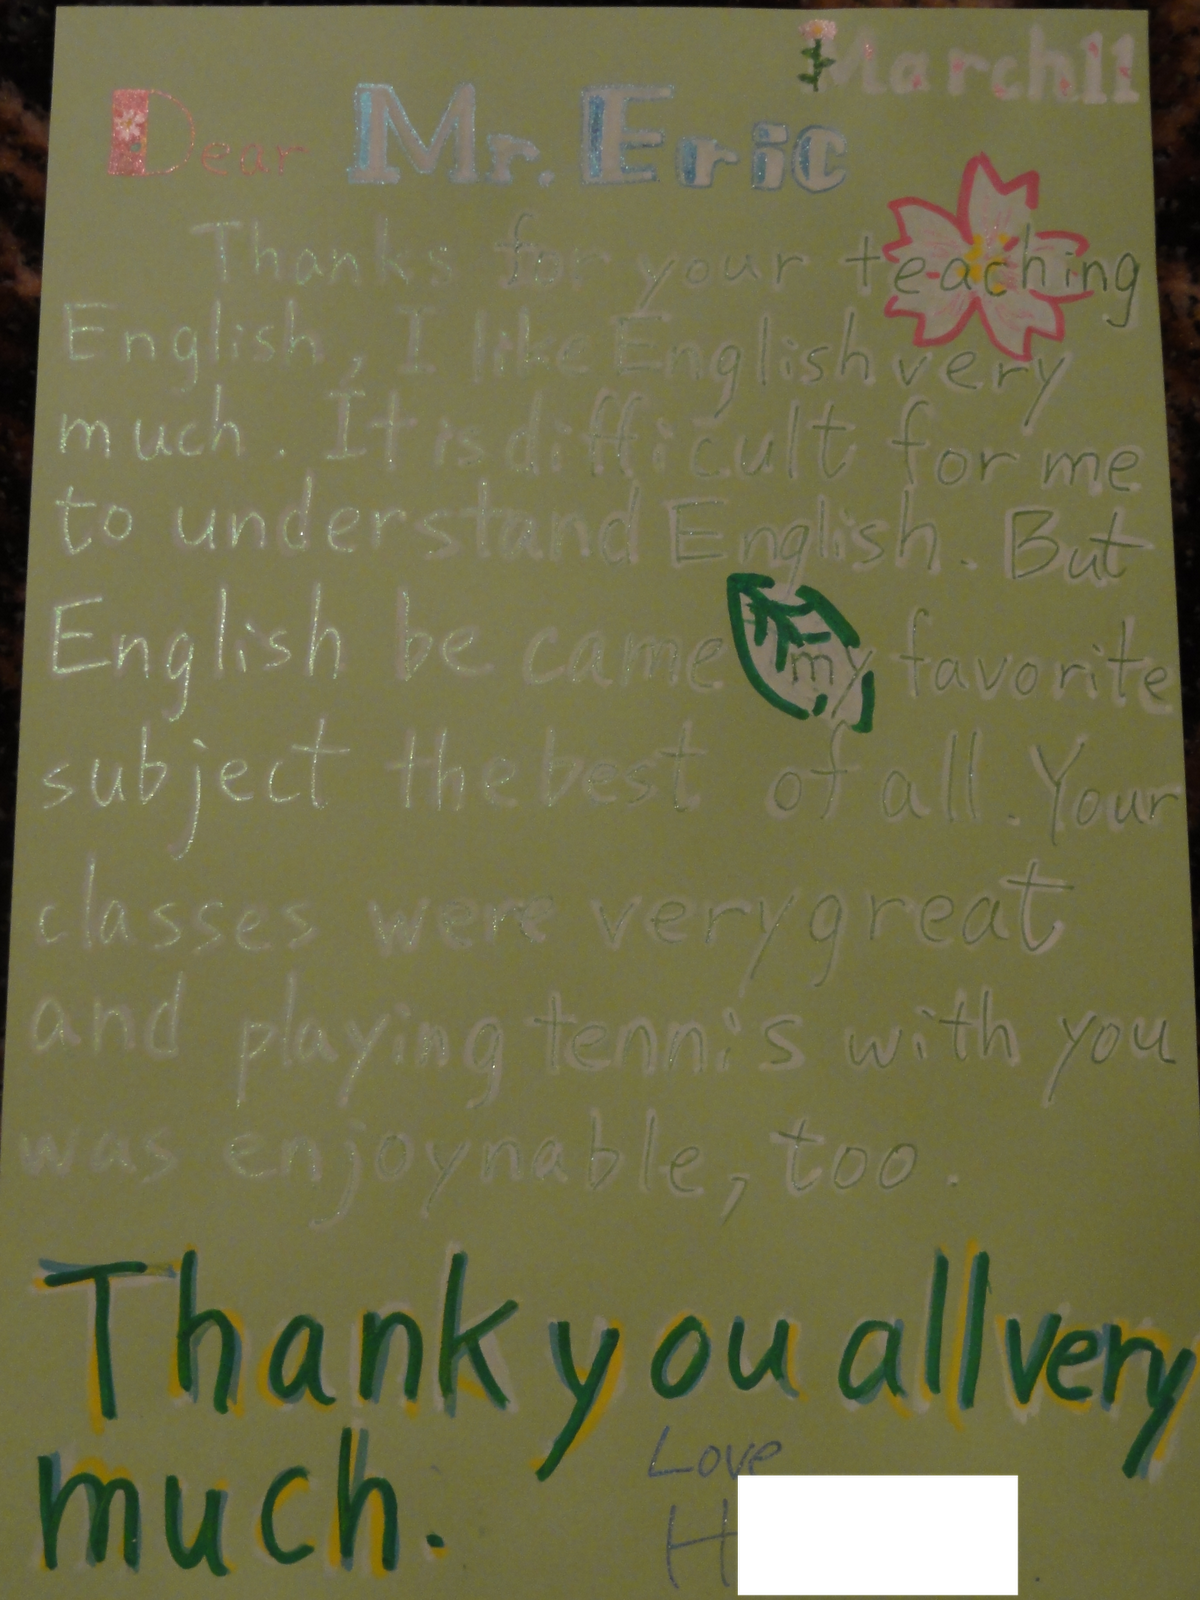 March 11
Dear Mr. Eric
Thanks for your teaching
English, I like English very
much. It is difficult for me
to understand English. But
English be came my favorite
subject the best of all. Your
classes were very great
and playing tennis with you
was enjoynable, too.
Thank you all very
much.
Love
H